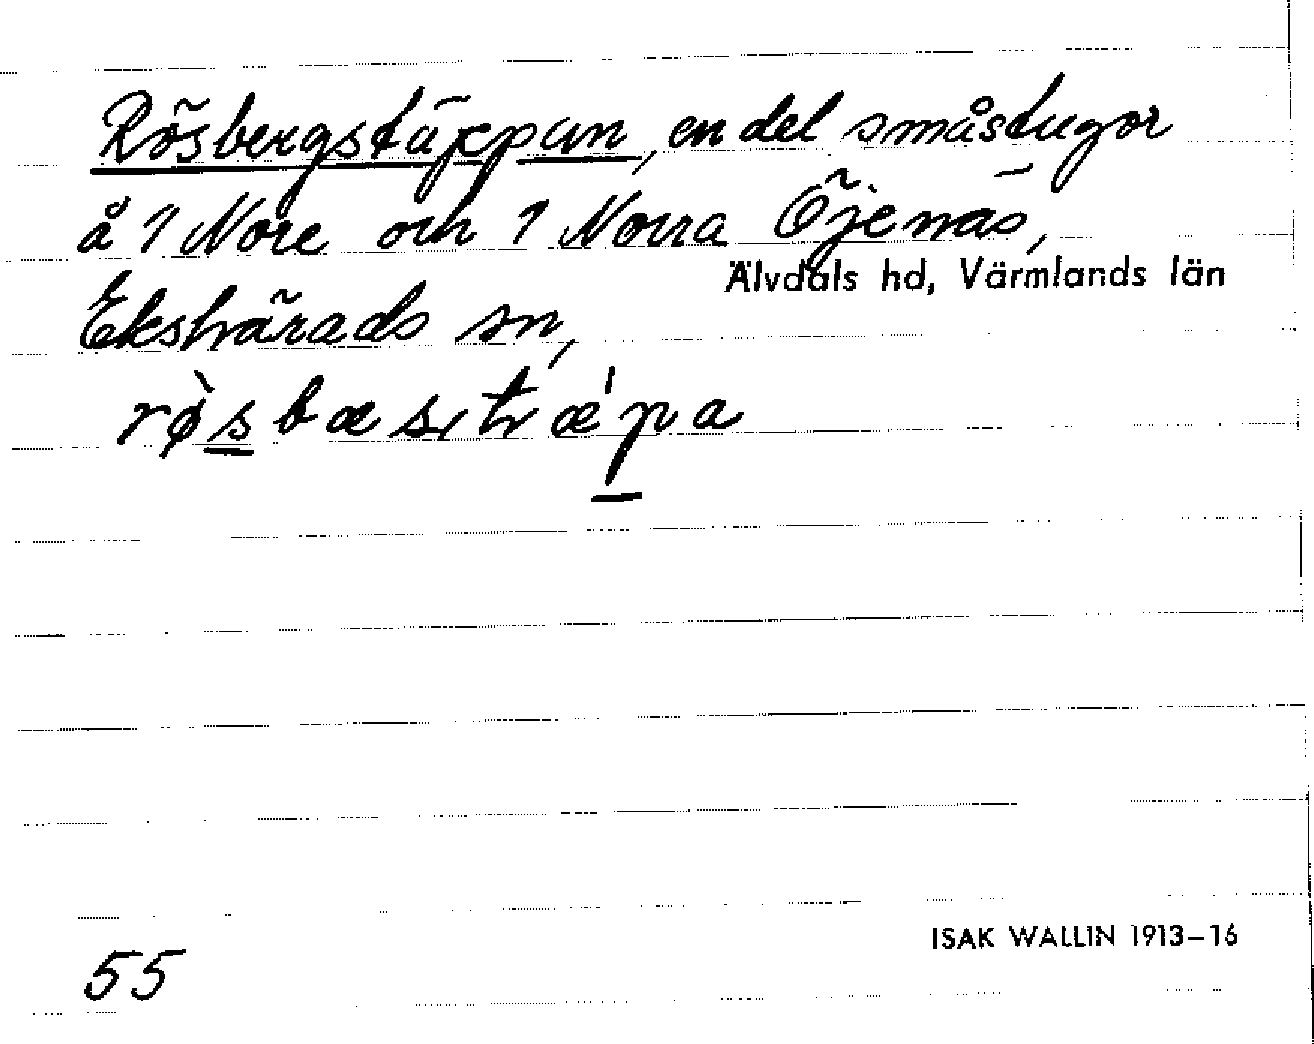 Rösbergstäppan, en del småstugor
å 1/1 Nore och 1 Norra Öjenäs,
Älvdals hd, Värmlands län
Ekshärads sn,
55
ISAK WALLIN 1913–16